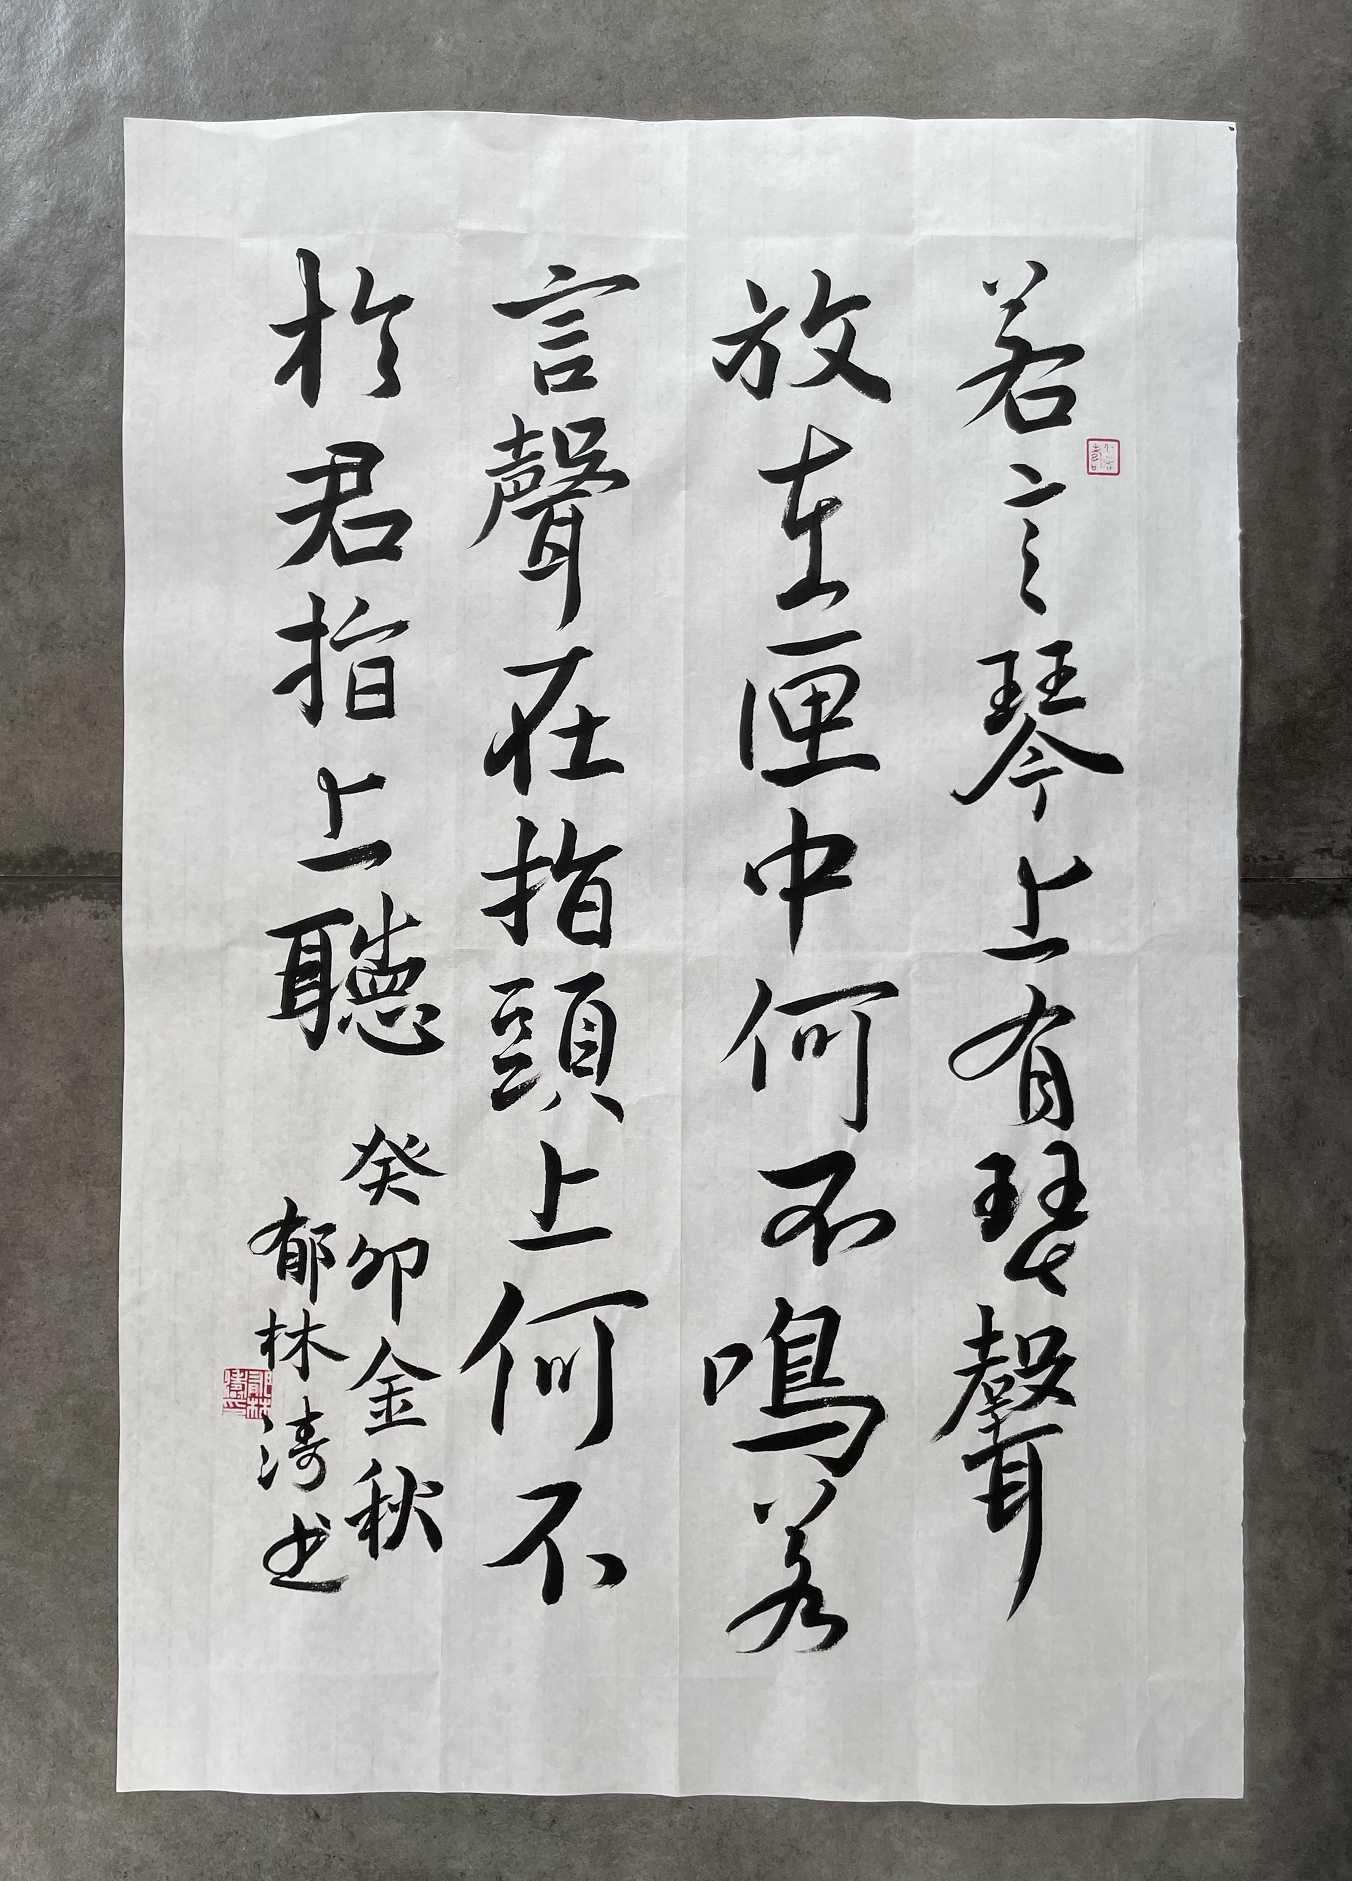 若言琴上有琴聲
放在匣中何不鳴若
言聲在指頭上何不
於君指上聽
癸卯金秋
郁林濤书